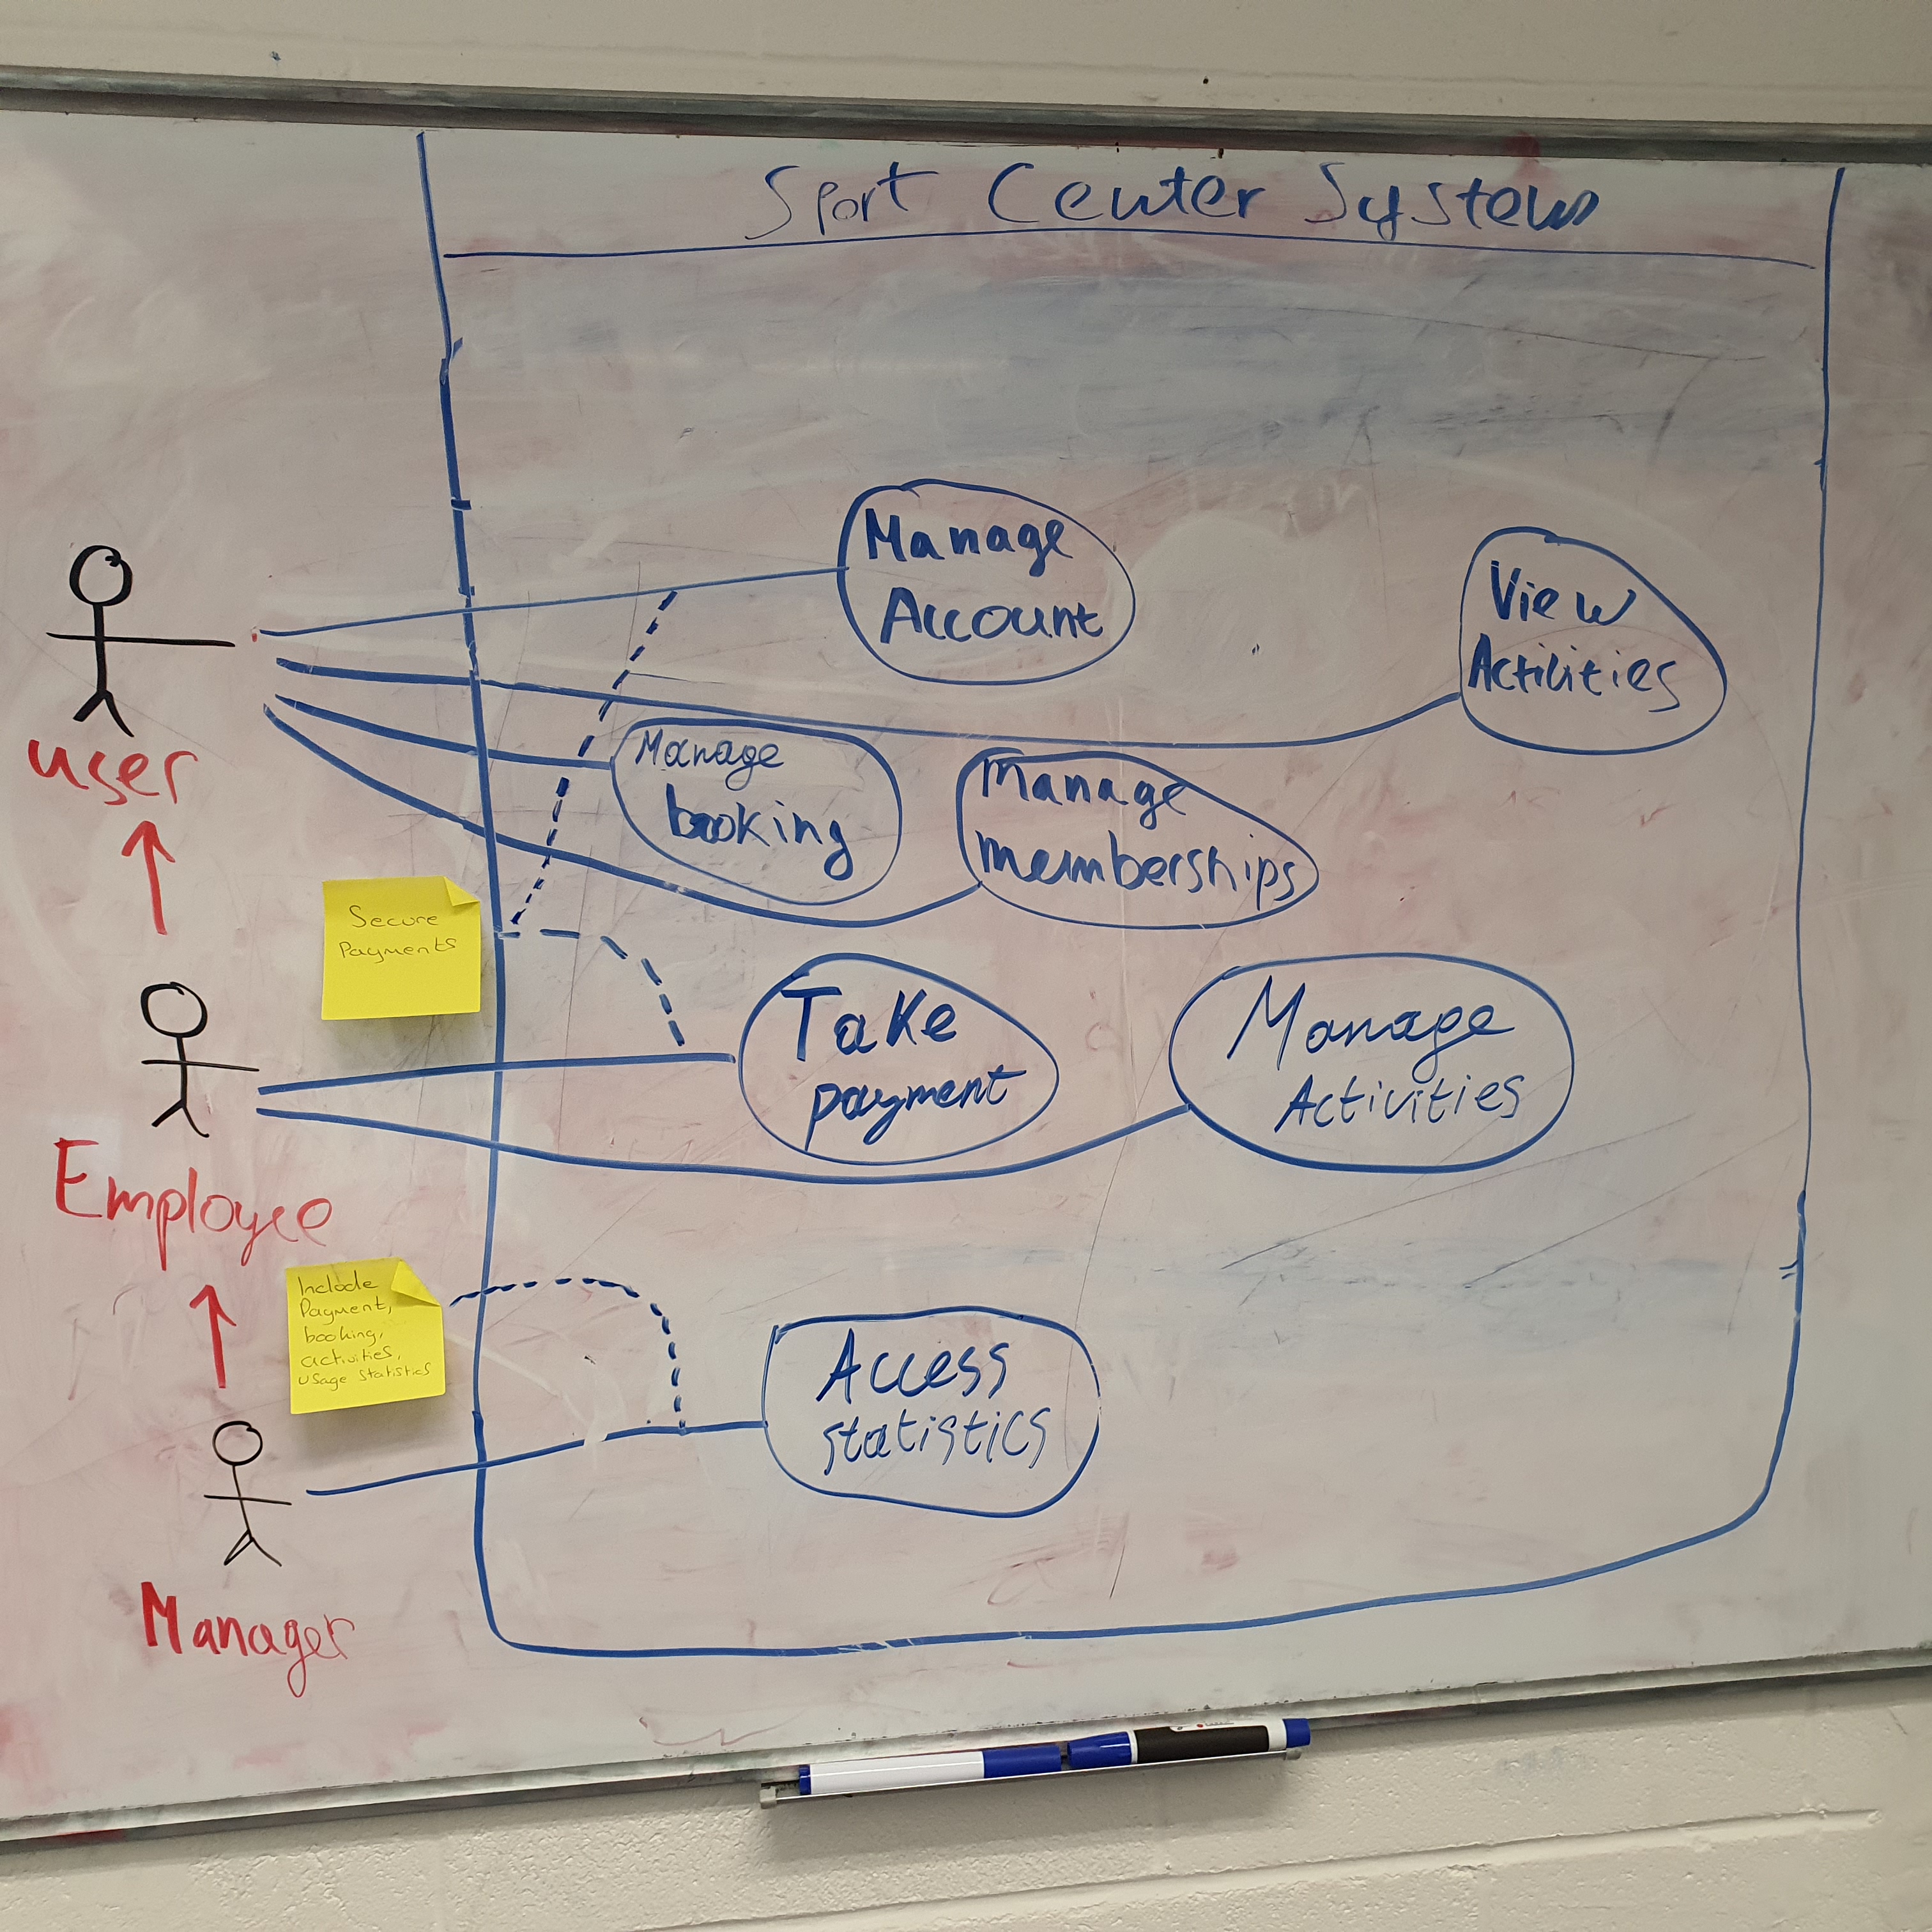 Sport Center System
Manage
Account
View
Activities
user
Manage
booking
Manage
memberships
Secure
Payments
Take
payment
Manage
Activities
Employee
Include
Payment,
booking,
activities,
usage statistics
Access
statistics
Manager